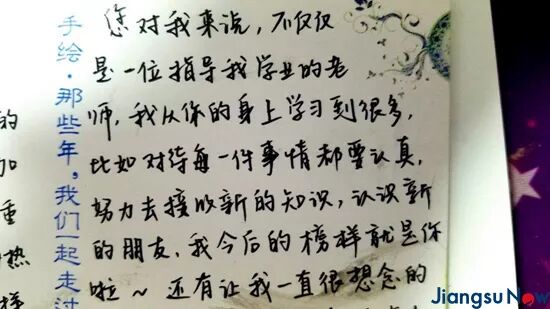 您对我来说，不仅仅
是一位指导我学业的老
师，我从你的身上学习到很多，
比如对待每一件事情都要认真，
努力去接收新的知识，认识新
的朋友，我今后的榜样就是你
啦～ 还有让我一直很想念的
手绘·那些年，我们一起走过
的
加
重
热
样
JiangsuNow